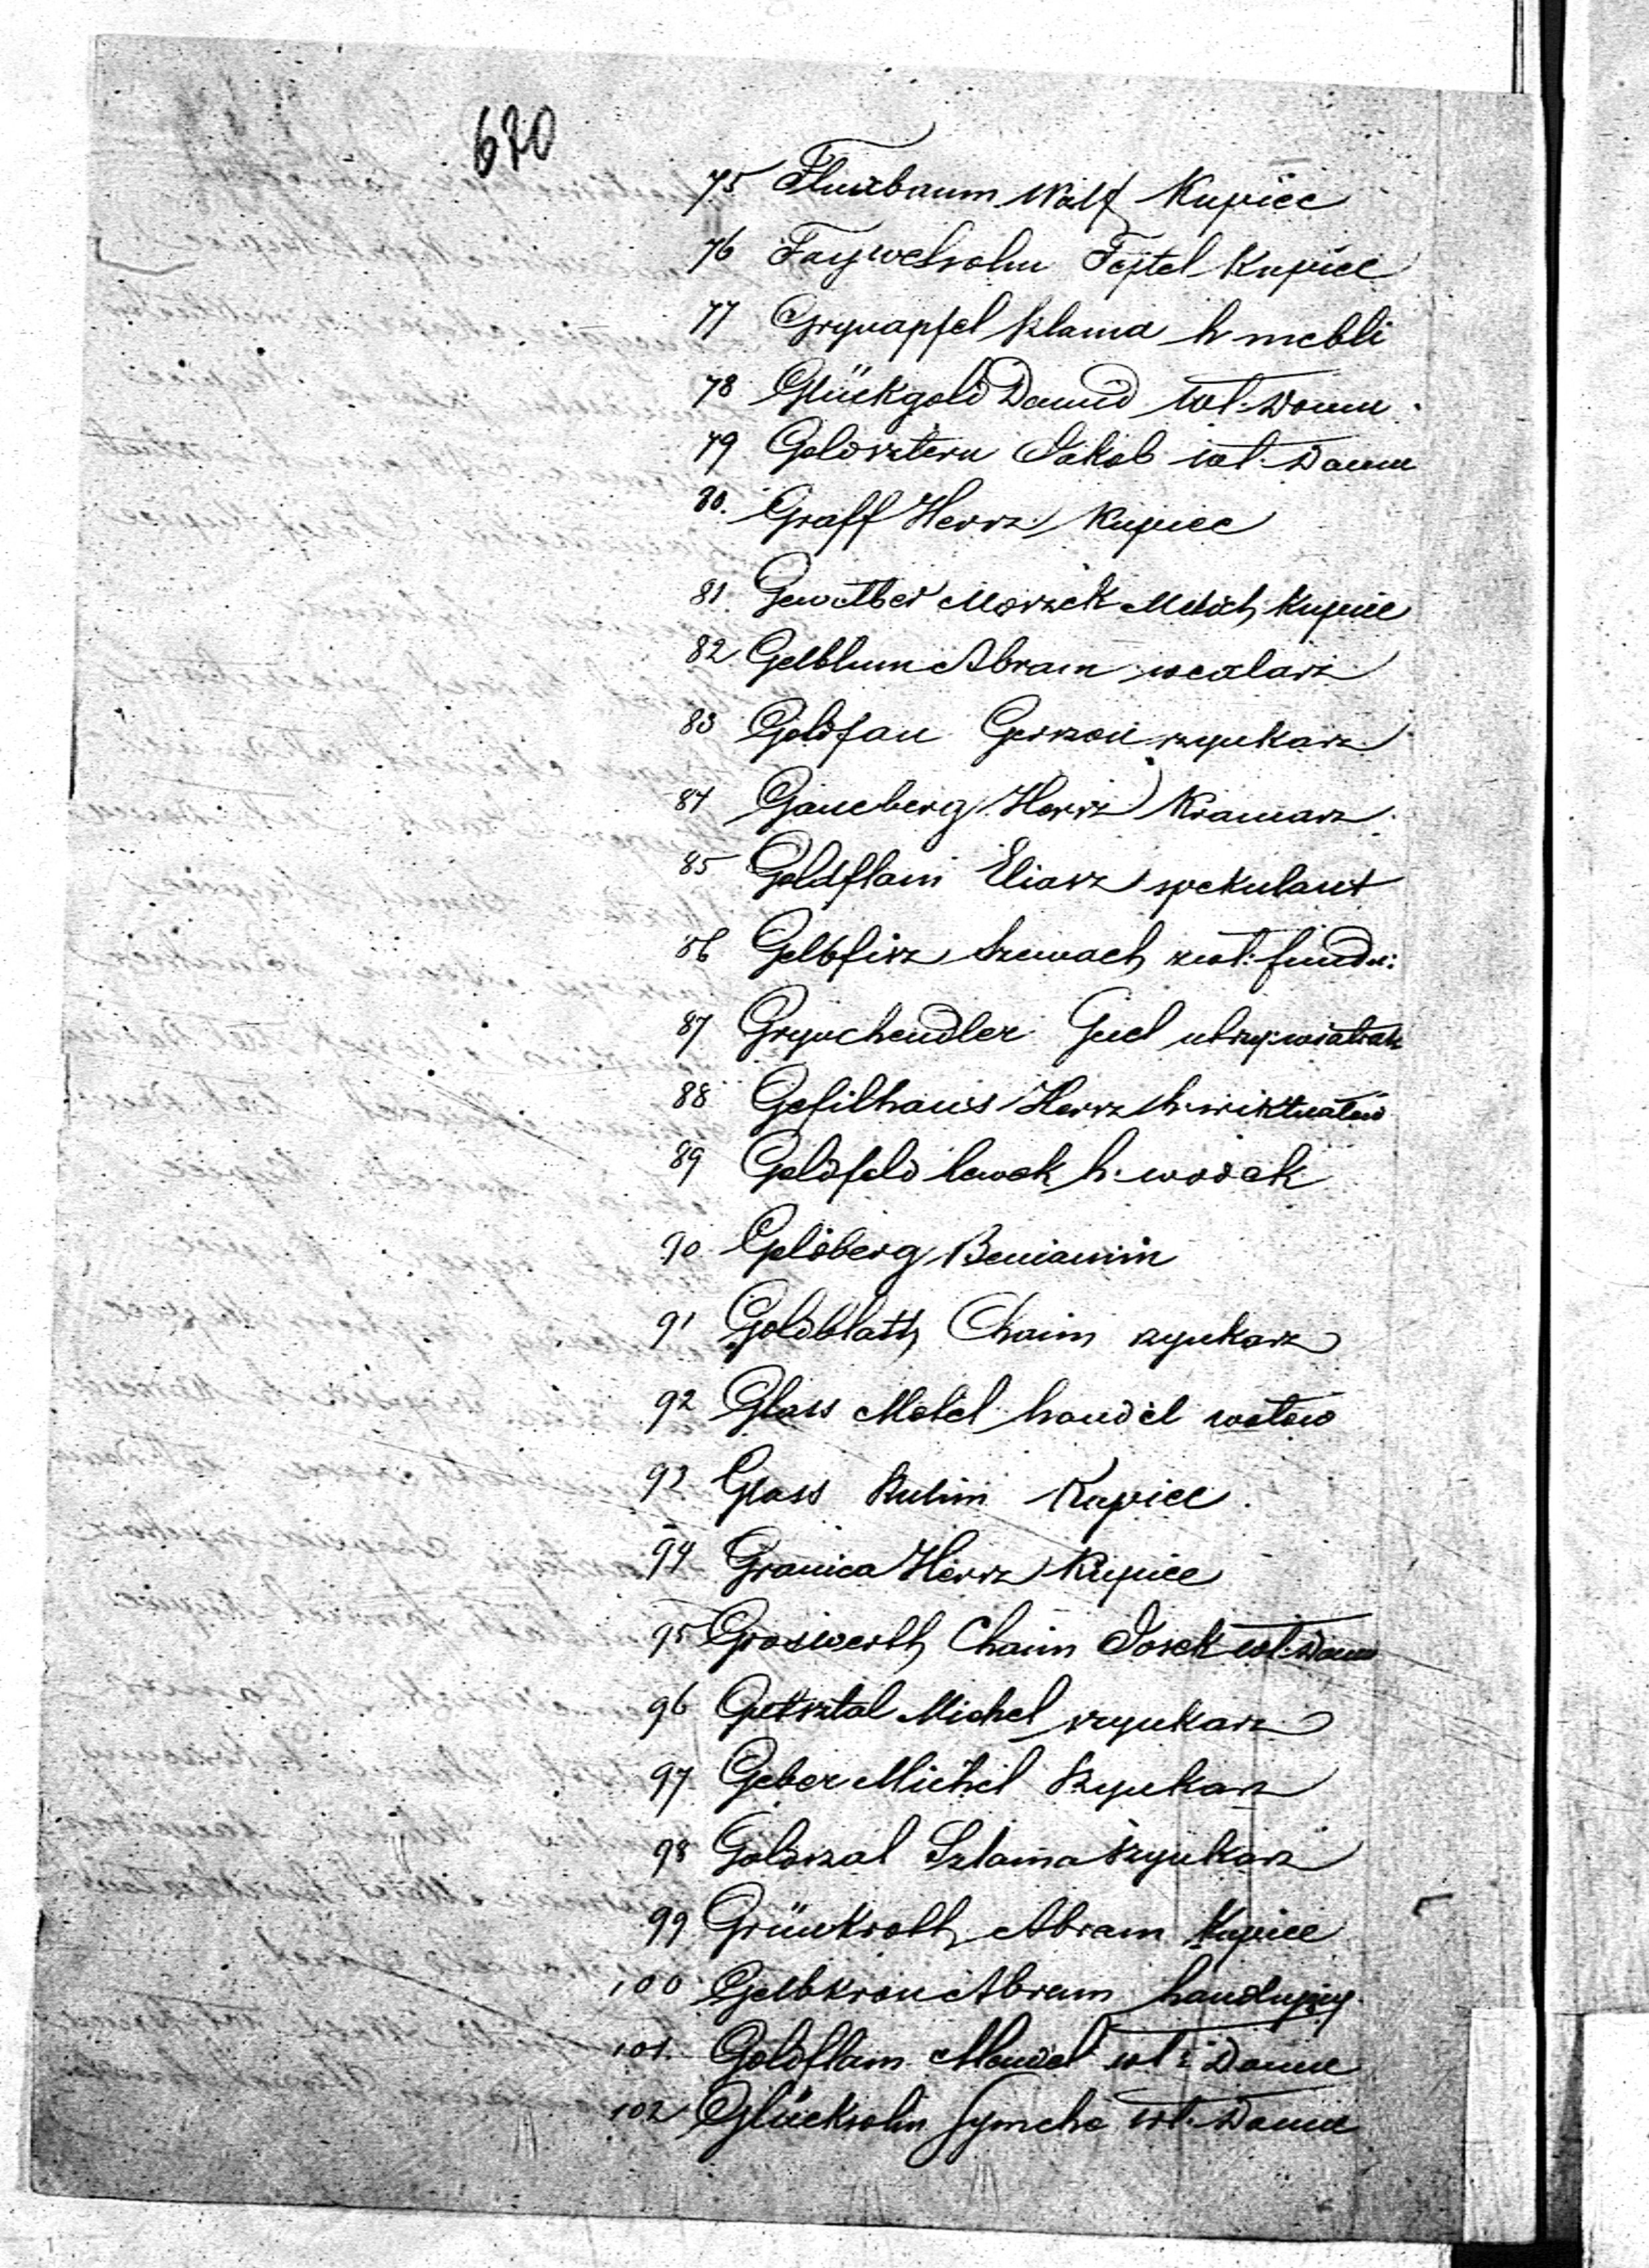 670
75 Fluxbaum Wolf Kupiec
76 Faywelsohn Fejtel Kupiec
77 Grynapfel Szlama h. mebli
78 Glückgold Dawid wł: Domu
79 Goldsztern Jakob wł: Domu
80. Graff Hersz Kupiec
81. Morszek Kupiec
82 Gelblum Abram wexlarz
83 Goldfan Gerszon szynkarz
84 Ganeberg Hersz Kramarz
85 Goldflam Eliasz spekulant
86 Gelbfisz Szmach wł: fundu:
87 Grynhendler utrzy: wiatrak
88 Gefilhaus Hersz h. wiktuałów
89 Goldfeld Lewek h. wódek
90. Goldberg Beniamin
91 Goldblatt Chaim szynkarz
92 Glass Motel handel wołow
93 Glass Rubin Kupiec.
94 Granica Hersz Kupiec
95 Groswerth Chaim Josek wł: Domu
96 Gutsztal Michel szynkarz
97 Geber Michel Szynkarz
98 Goldszal Szlama Szynkarz
99 Grünkroth Abram Kupiec
100 Gelbkron Abram handlujący
101. Goldflam Mendel wł: Domu
102 Glücksohn Symcha wł: Domu